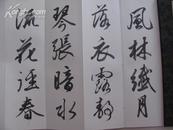 風林纖月
落衣露静
琴張暗水
流花逕春